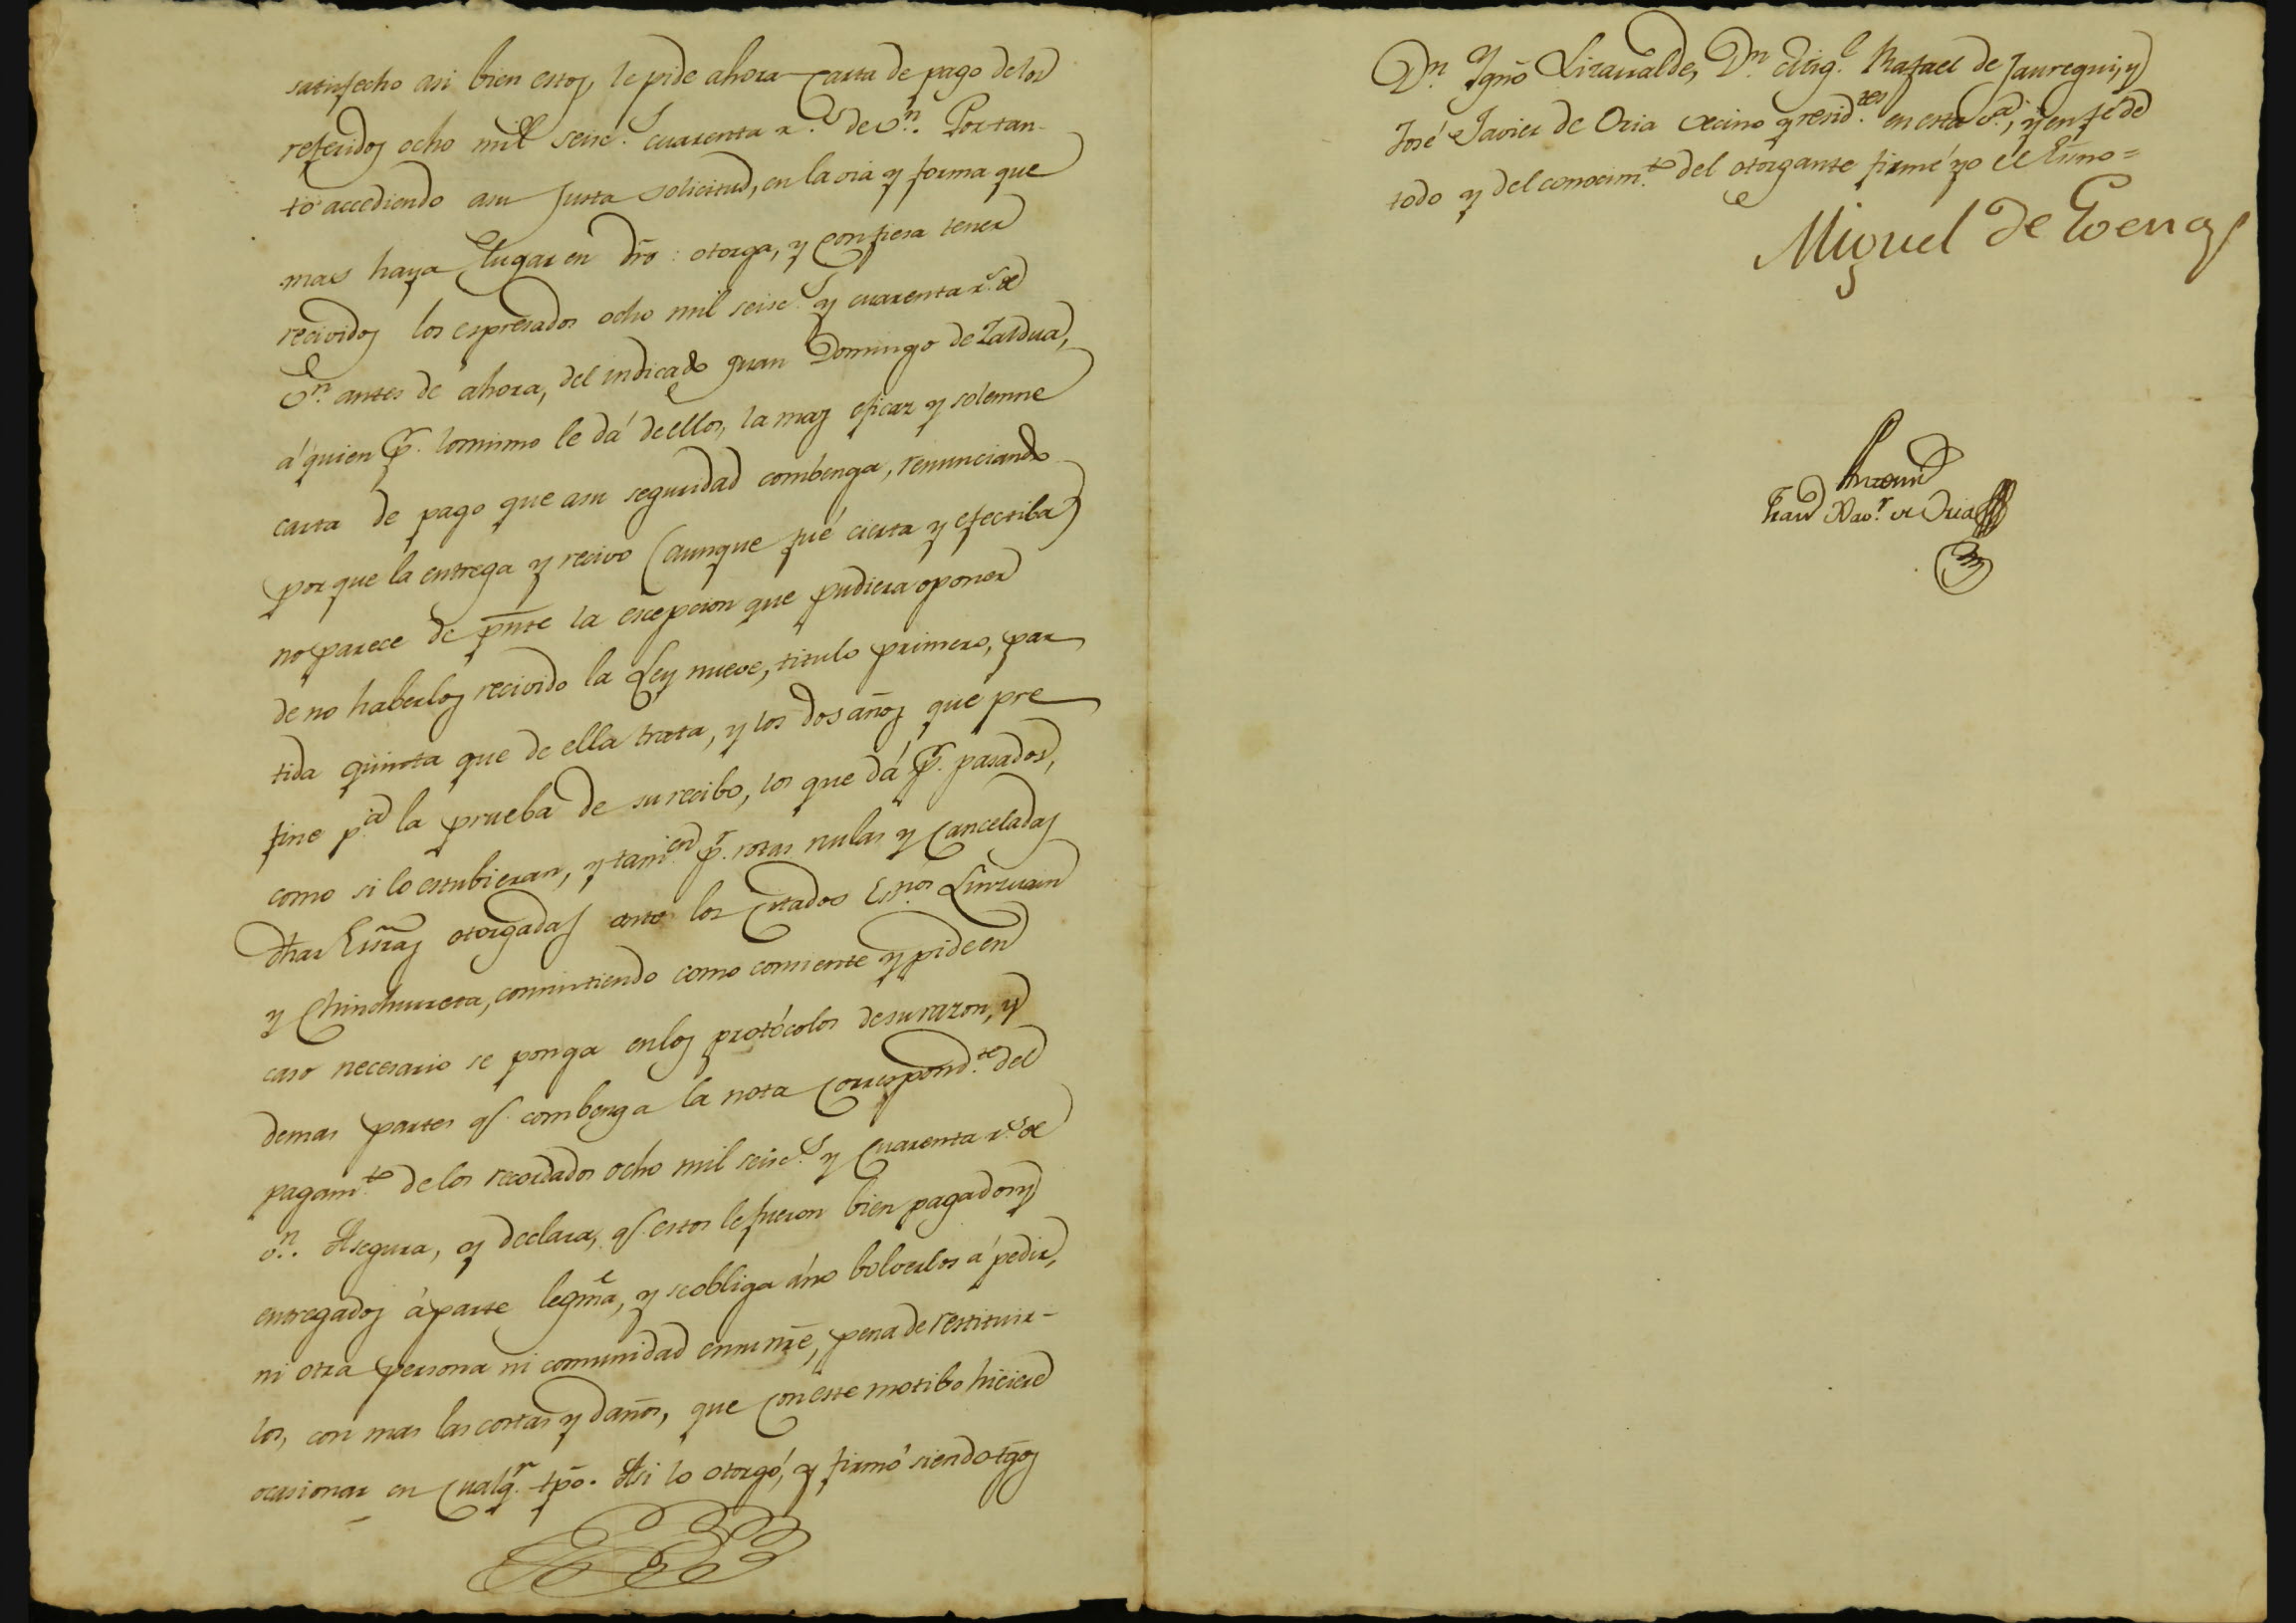 satisfecho asi bien estos, le pide ahora carta de pago de los
referidos ocho mill seisc.s cuarenta r.s de v.n. Por tan-
to accediendo asu Justa solicitud, en la via y forma que
mas haya Lugar en dro: otorga, y confiesa tener
recividos los espresados ocho mil seisc.s y cuarenta r.s de
v.n antes de ahora, del indicado Juan Domingo de Zaldua,
á quien p.r lo mismo le dá de ellos, la mas eficaz y solemne
carta de pago que asu seguridad combenga, renunciando
por que la entrega y recivo (aunque fué cierta y efectiba)
no parece de pnte la escepcion que pudiera oponer
de no haberlos recivido la Ley nueve, titulo primero, par
tida quinta que de ella trata, y los dos años que pre
fine p.a la prueba de su recibo, los que dá p.r pasados,
como si lo estubieran, y tam.en p.r rotas nulas y canceladas
dhas Essras otorgadas ante los citados Es.nos Linzuain
y Chinchurreta, consintiendo como consiente y pide en
caso necesario se ponga en los protócolos de su razon, y
demas partes q.e combenga la nota correspond.te del
pagam.to de los recordados ocho mil seisc.s y cuarenta r.s de
v.n. Asegura, y declara, q.e estos le fueron bien pagados y
entregados á parte legma, y se obliga á no bolverlos á pedir,
ni otra persona ni comunidad en su nre, pena de restituir-
los, con mas las costas y daños, que con este motibo hiciere
ocasionar en cualq.r tpo. Asi lo otorgó, y firmó siendo tgos
D.n Ygno Lizarralde, D.n Mig.l Rafael de Jauregui, y
José Javier de Oria vecino y resid.tes en esta v.a, y en fe de
todo y del conocim.to del otorgante firmé yo el Essno=
Miguel de
Antemi
Fran.co Xav.r de Oria